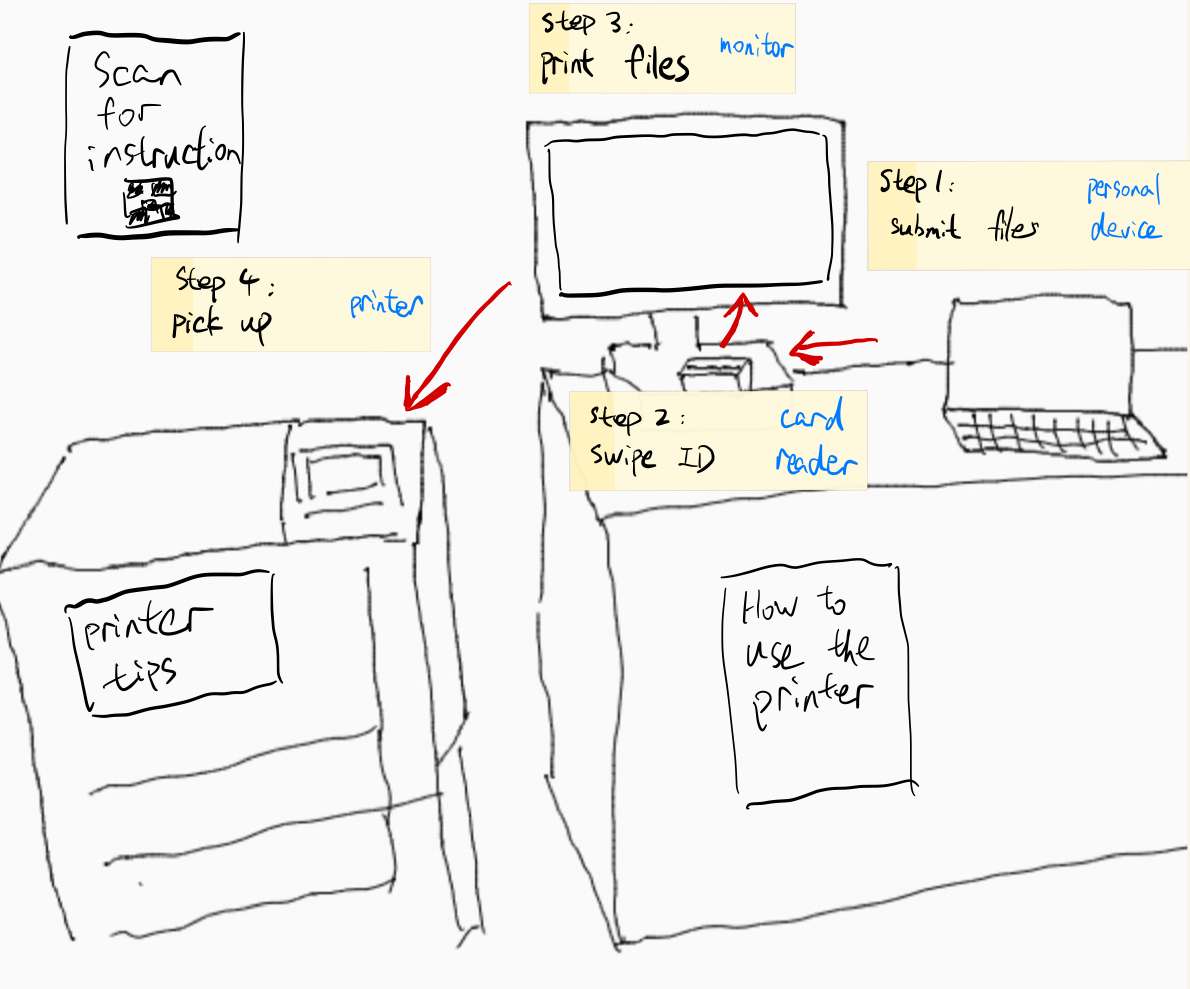 Scan
for
instruction
Step 3:
print files
monitor
Step 1:
submit files
personal
device
Step 4:
pick up
printer
Step 2:
swipe ID
card
reader
printer
tips
How to
use the
printer